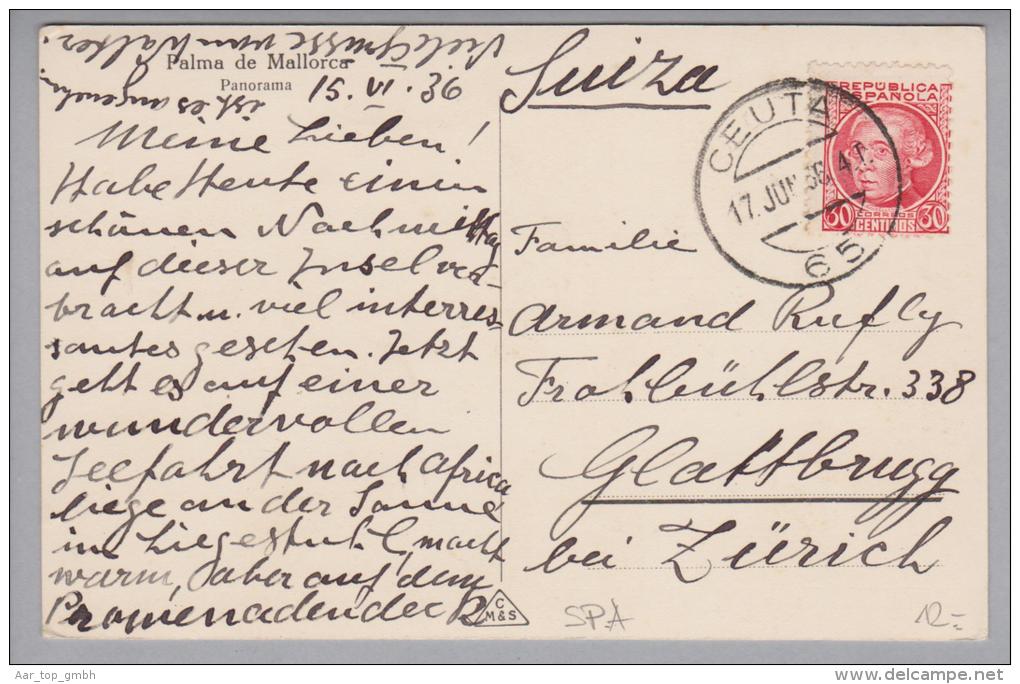 Palma de Mallorca
Panorama
15. VI. 36
Meine Lieben!
Habe Heute einen
schönen Nachmittag
auf dieser Insel ver-
bracht u. viel interres-
santes gesehen. Jetzt
geht es auf einer
wundervollen
Seefahrt nach Africa
liege an der Sonne
im Liegestuhl, macht
warm, aber auf dem
Promenadendeck
ist es angenehm
Viele Grüsse von Walter.
Suiza
REPÚBLICA
ESPAÑOLA
CORREOS
30 CENTIMOS 30
CEUTA
17. JUN 36 4T.
65
Familie
Armand Rufly
Frohbühlstr. 338
Glattbrugg
bei Zürich
C
M&S
SPA
12.-
Aar_top_gmbh
www.delcampe.net